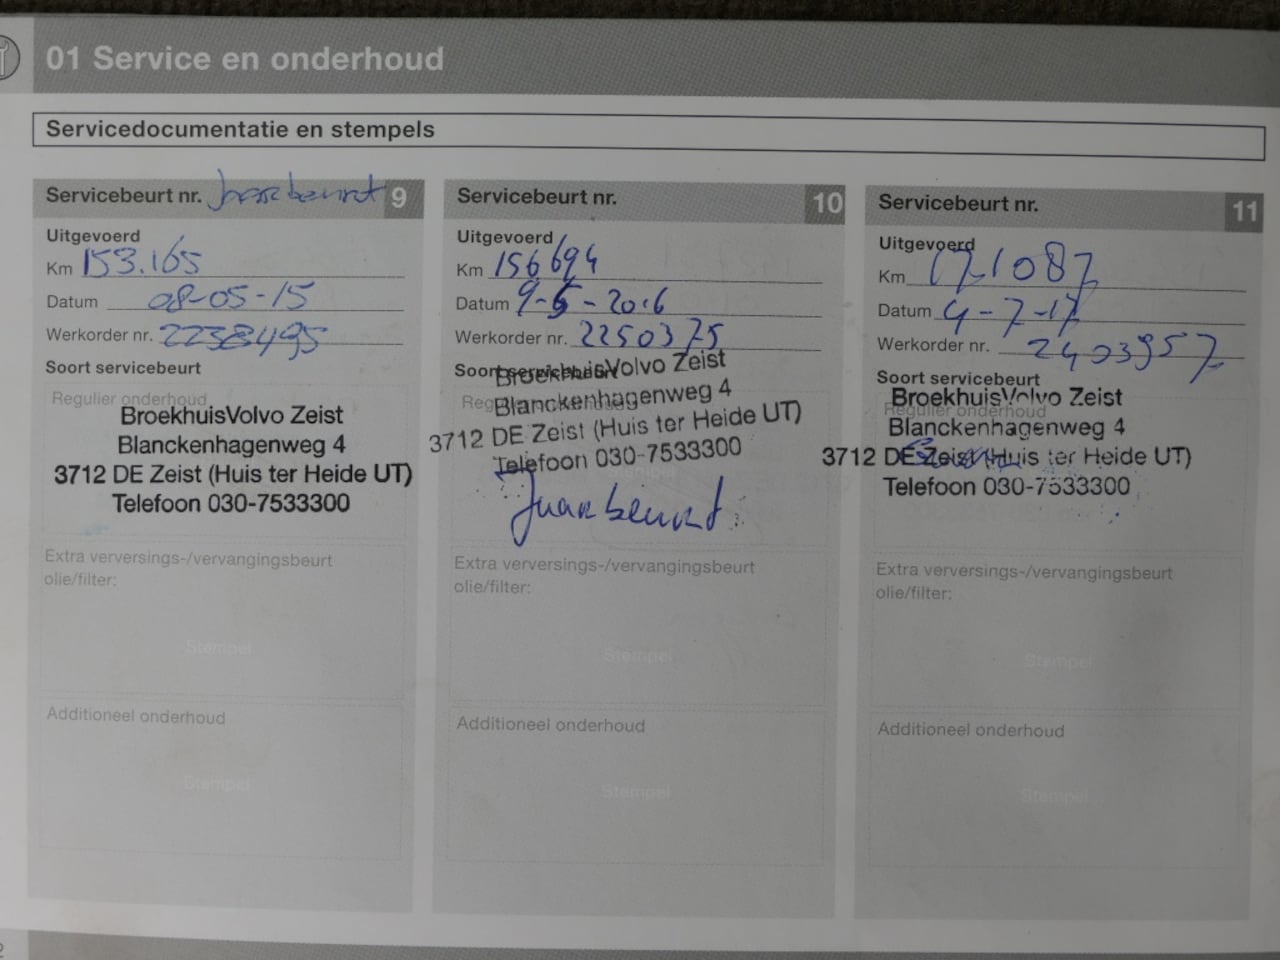 01 Service en onderhoud
Servicedocumentatie en stempels
Servicebeurt nr. 9
Uitgevoerd
Km 153.165
Datum 08-05-15
Werkorder nr. 2238495
Soort servicebeurt
Regulier onderhoud
BroekhuisVolvo Zeist
Blanckenhagenweg 4
3712 DE Zeist (Huis ter Heide UT)
Telefoon 030-7533300
Extra verversings-/vervangingsbeurt
olie/filter:
Stempel
Additioneel onderhoud
Stempel
Servicebeurt nr. 10
Uitgevoerd
Km 156694
Datum 9-5-2016
Werkorder nr. 2250375
Soort servicebeurt
BroekhuisVolvo Zeist
Blanckenhagenweg 4
3712 DE Zeist (Huis ter Heide UT)
Telefoon 030-7533300
Extra verversings-/vervangingsbeurt
olie/filter:
Stempel
Additioneel onderhoud
Stempel
Servicebeurt nr. 11
Uitgevoerd
Km 171087
Datum 4-7-17
Werkorder nr. 2403957
Soort servicebeurt
BroekhuisVolvo Zeist
Regulier onderhoud
Blanckenhagenweg 4
3712 DE Zeist (Huis ter Heide UT)
Telefoon 030-7533300
Extra verversings-/vervangingsbeurt
olie/filter:
Stempel
Additioneel onderhoud
Stempel